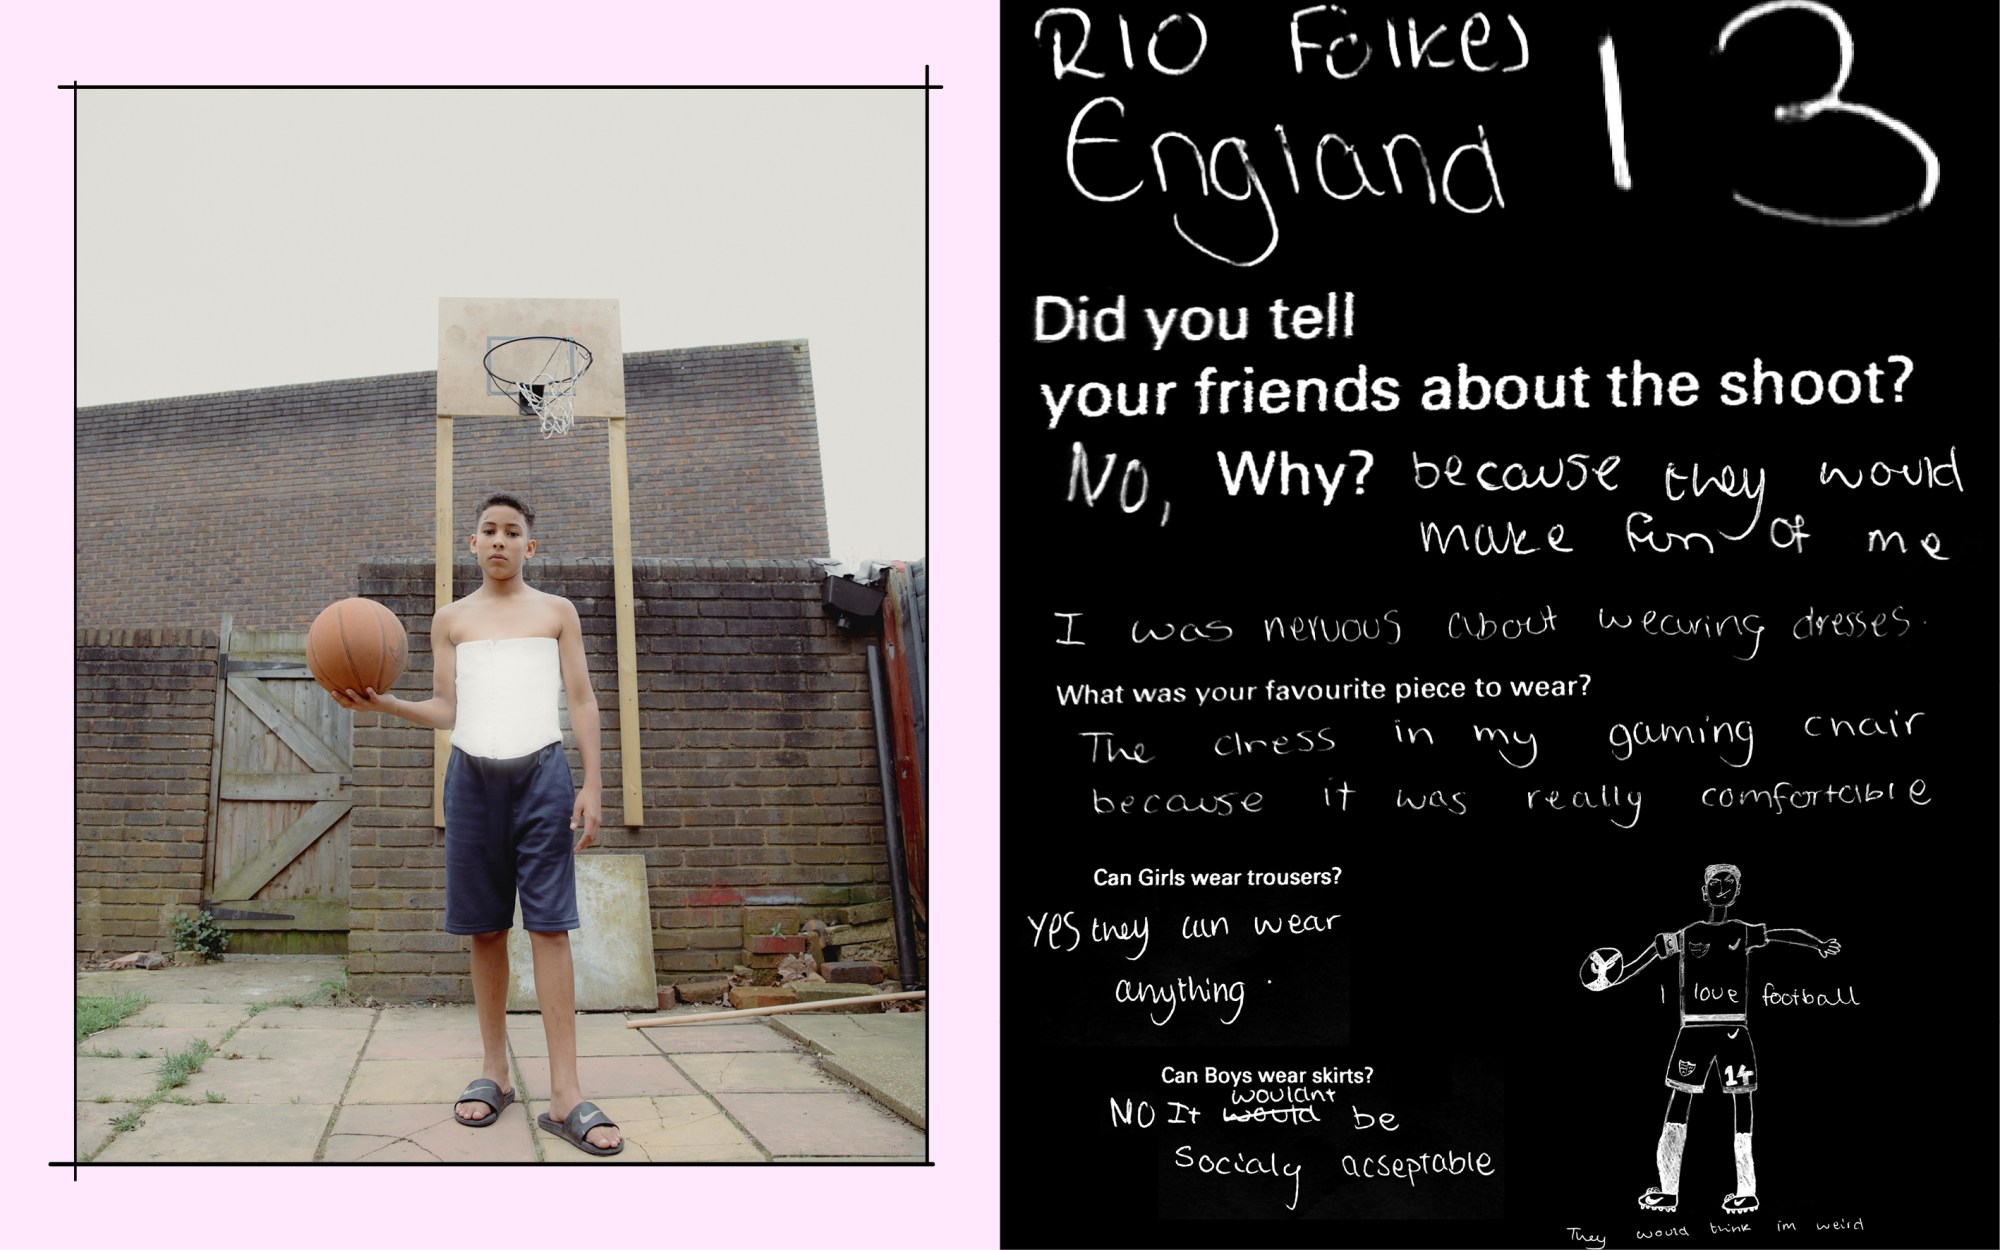 RIO Folkes 13
England
Did you tell
your friends about the shoot?
No, Why? because they would
make fun of me
I was nervous about wearing dresses.
What was your favourite piece to wear?
The dress in my gaming chair
because it was really comfortable
Can Girls wear trousers?
YES they can wear
anything.
Can Boys wear skirts?
wouldnt
NO It would be
Socialy acseptable
I love football
14
They would think im weird